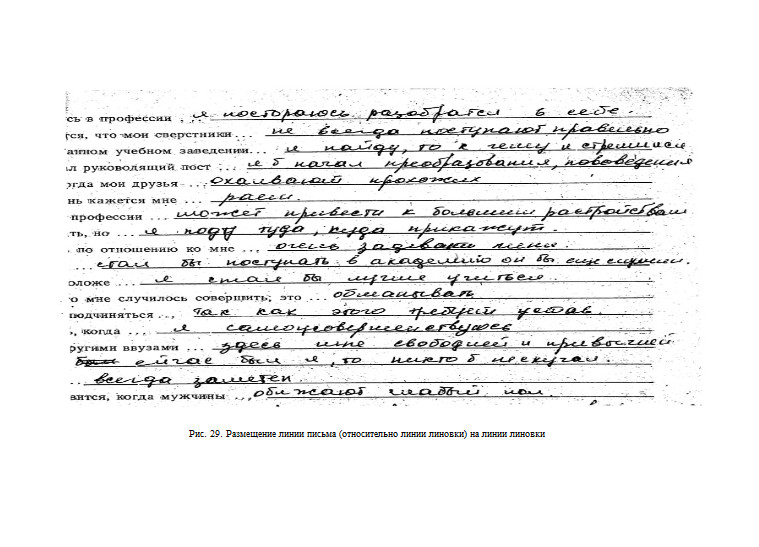 сь в профессии ... я постораюсь разобратся в себе.
тся, что мои сверстники ... не всегда поступают правельно
анном учебном заведении... я найду, то к чему и стремился
ил руководящий пост ... я б начал преобразования, нововедения
огда мои друзья ... охаивают прохожих
нь кажется мне ... раем.
профессии ... может привести к большим растройствам
ть, но ... я пойду туда, куда прикажут.
по отношению ко мне ... очень задевали меня
... стал бы поступать в академию он бы
оложе ... я стал бы лучше учиться
о мне случилось совершить, это ... обманывать
подчиняться ... так как этого требует устав.
ь, когда ... я самоусовершенствуюсь
ругими ввузами ... здесь мне свободней и привычней
ейчас был я, то никто б не скучал.
... всегда заметен.
вится, когда мужчины ... обижают слабый пол.
Рис. 29. Размещение линии письма (относительно линии линовки) на линии линовки